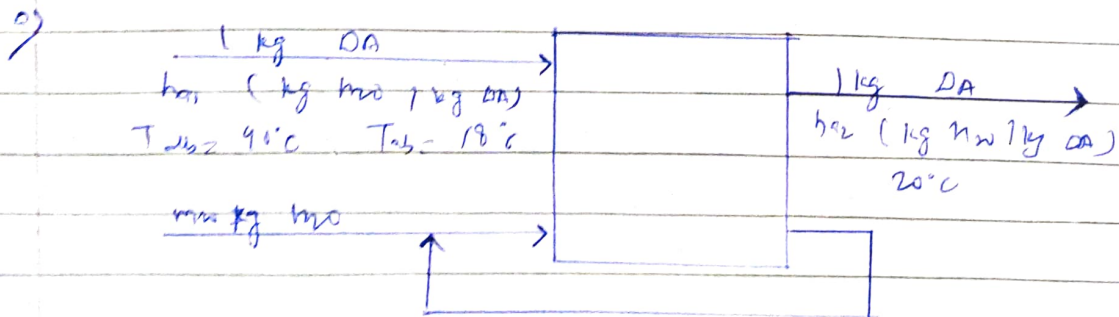 1 kg DA
ha1 (kg H2O / kg DA)
Tdb = 40°C Twb = 18°C
mw kg H2O
1 kg DA
ha2 (kg H2O / kg DA)
20°C